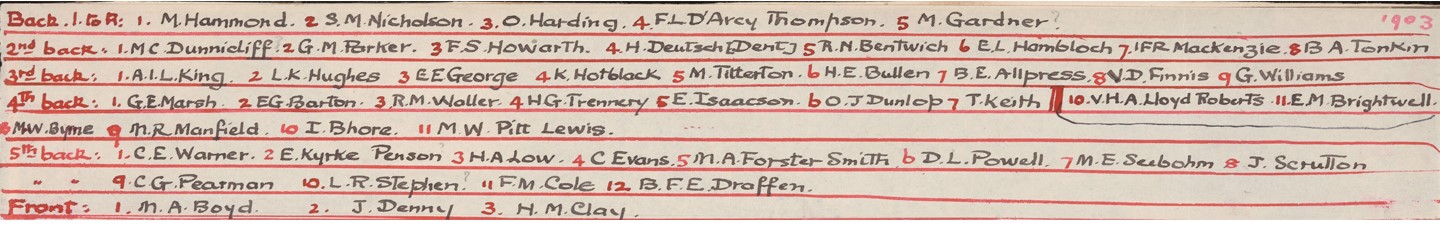 Back. l. to R: 1. M. Hammond. 2 S. M. Nicholson. 3. O. Harding. 4. F L D'Arcy Thompson. 5 M. Gardner? 1903
2nd back: 1. M C Dunnicliff? 2 G. M. Parker. 3 F. S. Howarth. 4. H. Deutsch [Dent] 5 R. N. Bentwich 6 E. L. Hambloch 7. I F R Mackenzie. 8 B A Tonkin
3rd back: 1. A. I. L. King. 2 L. K. Hughes 3 E E George 4 K. Hotblack 5 M. Titterton. 6 H. E. Bullen 7 B. E. Allpress. 8 V. D. Finnis 9 G. Williams
4th back: 1. G. E. Marsh. 2 E G. Barton. 3 R. M. Waller. 4 H G. Trennery 5 E. Isaacson. 6 O. J Dunlop 7 T. Keith 10. V. H. A. Lloyd Roberts. 11. E. M. Brightwell.
8 M. W. Byrne 9 M. R. Manfield. 10 I. Bhore. 11 M. W. Pitt Lewis.
5th back: 1. C. E. Warner. 2 E. Kyrke Penson 3 H. A Low. 4 C Evans. 5 M. A. Forster Smith 6 D. L. Powell. 7 M. E. Seebohm 8 J. Scrutton
" " 9. C. G. Pearman 10. L. R. Stephen? 11 F. M. Cole 12 B. F. E. Draffen.
Front: 1. M. A. Boyd. 2. J. Denny 3. H. M. Clay.